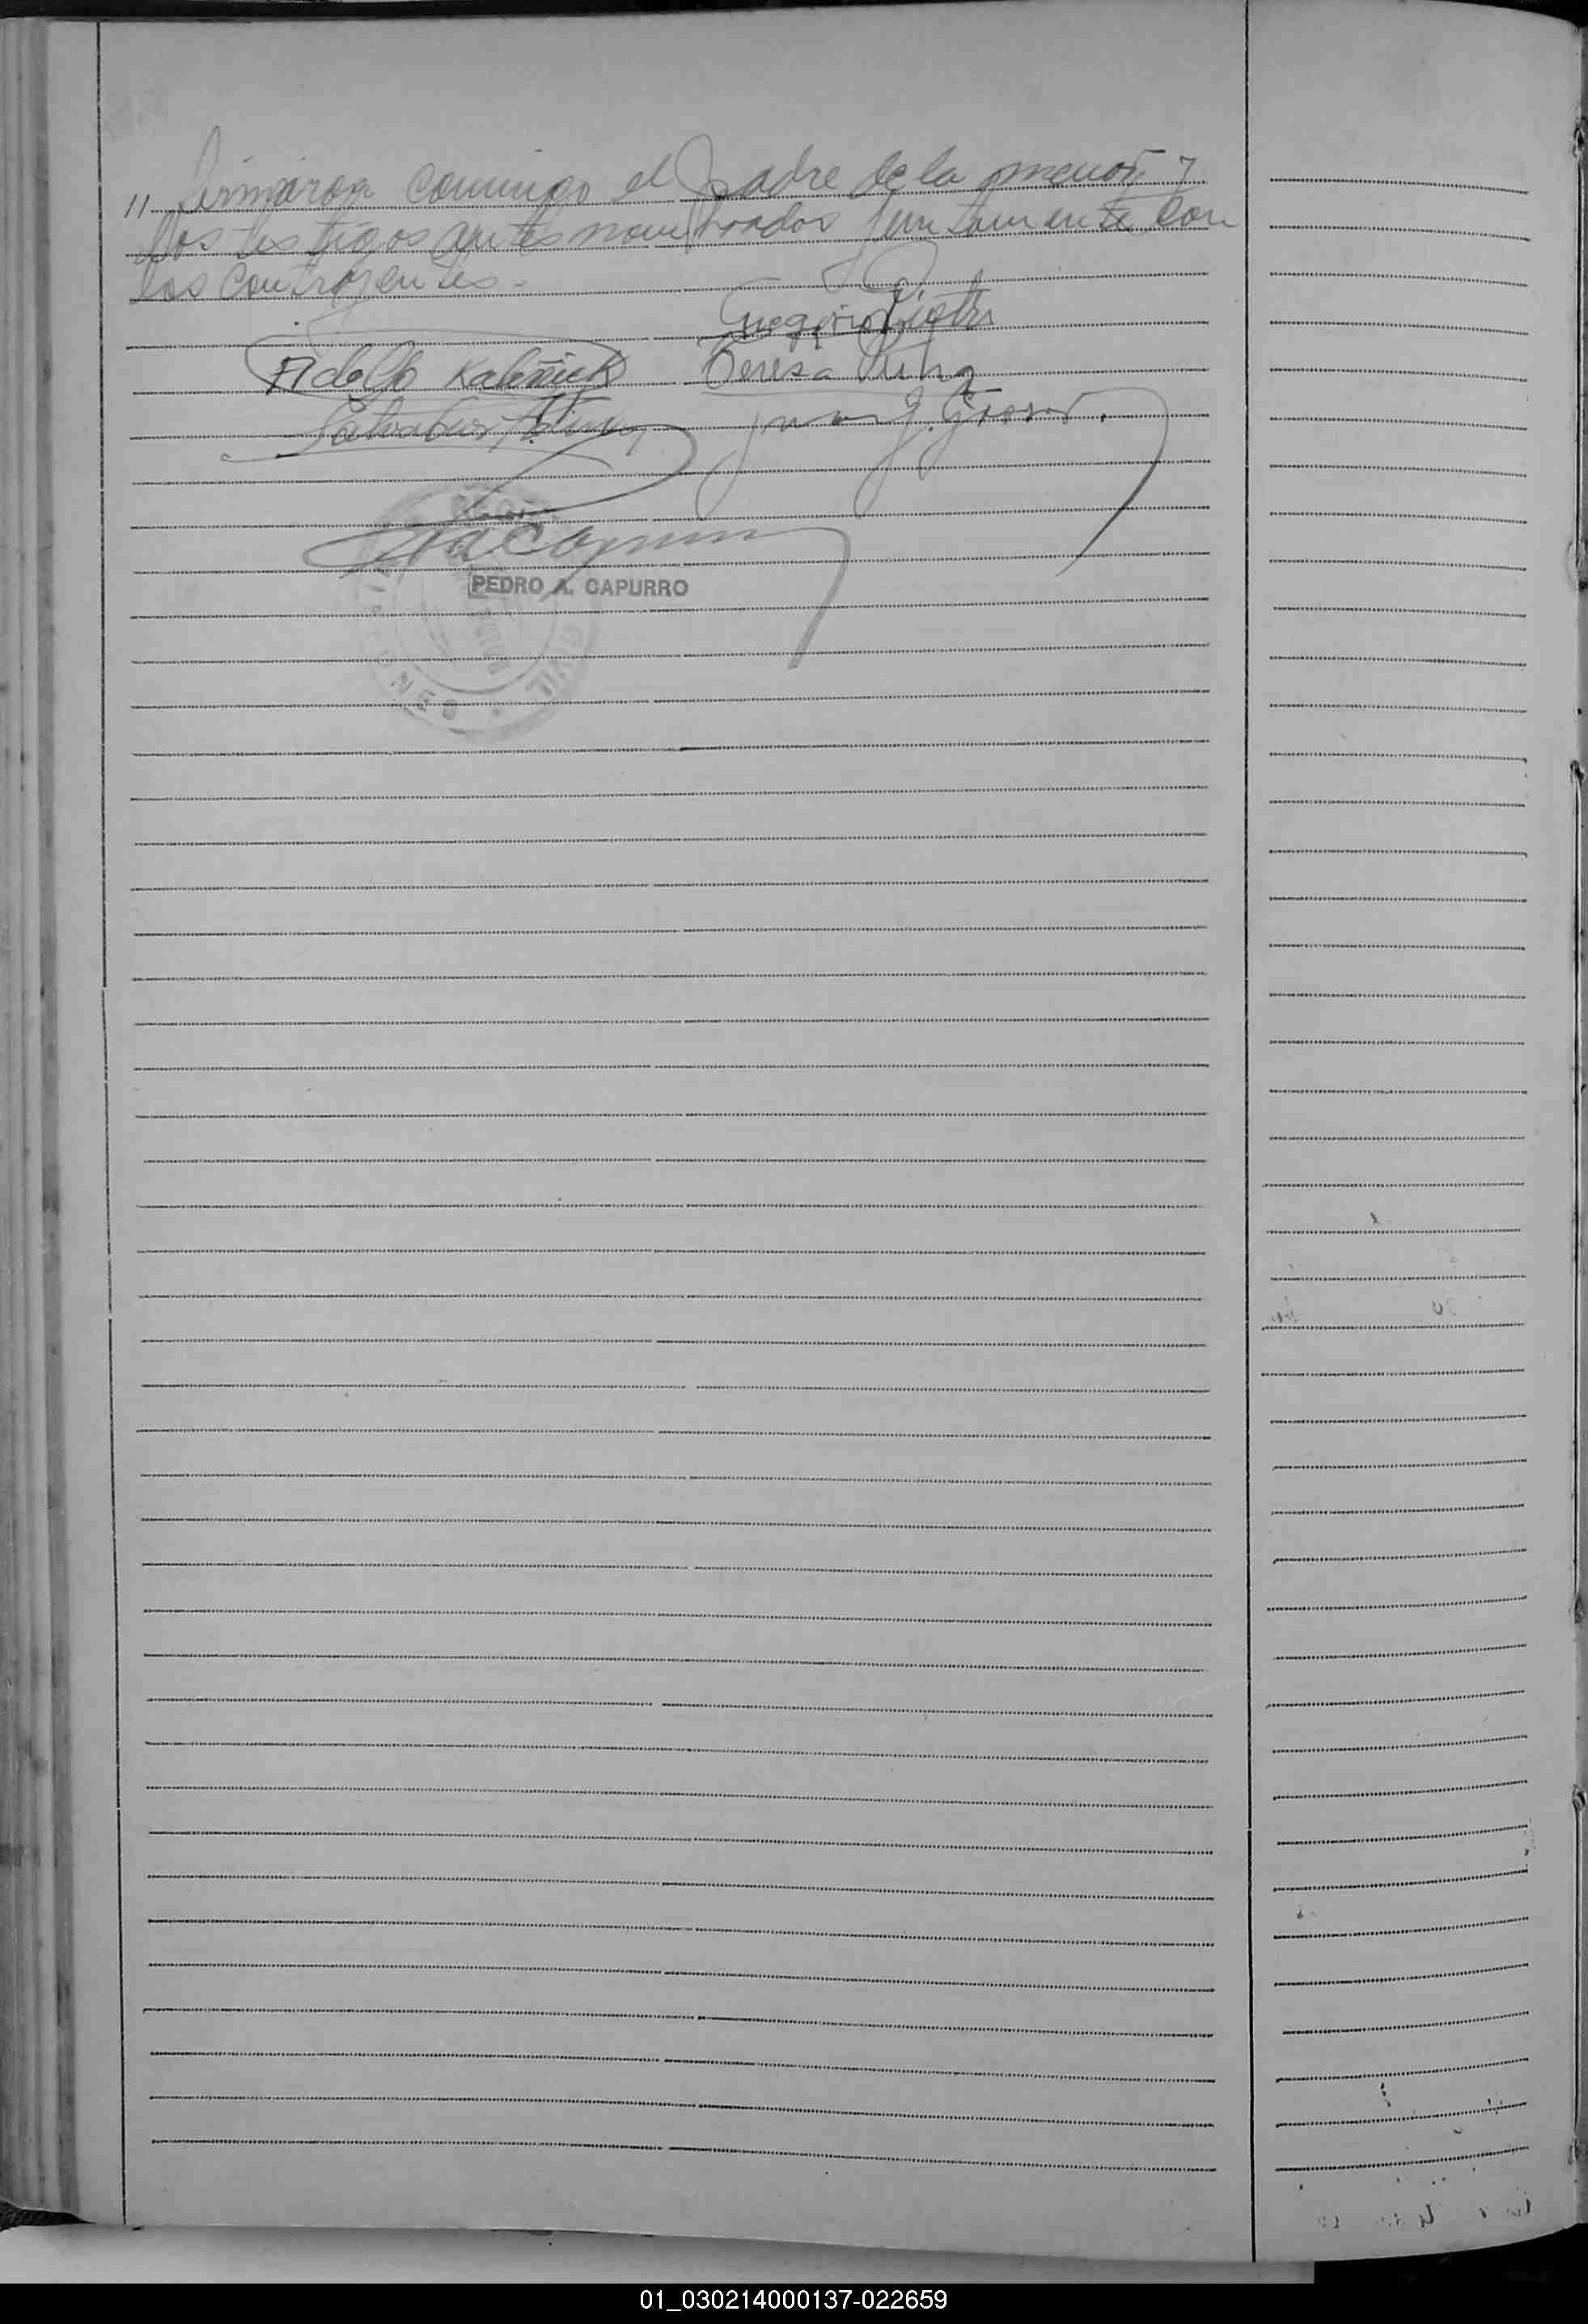 " firmaron conmigo el padre de la menor y
los testigos antes nombrados juntamente con
los contrayentes.-
Gregorio
Adolfo Kaleñick Teresa
Salvador Juan J.
PEDRO A. CAPURRO
01_030214000137-022659